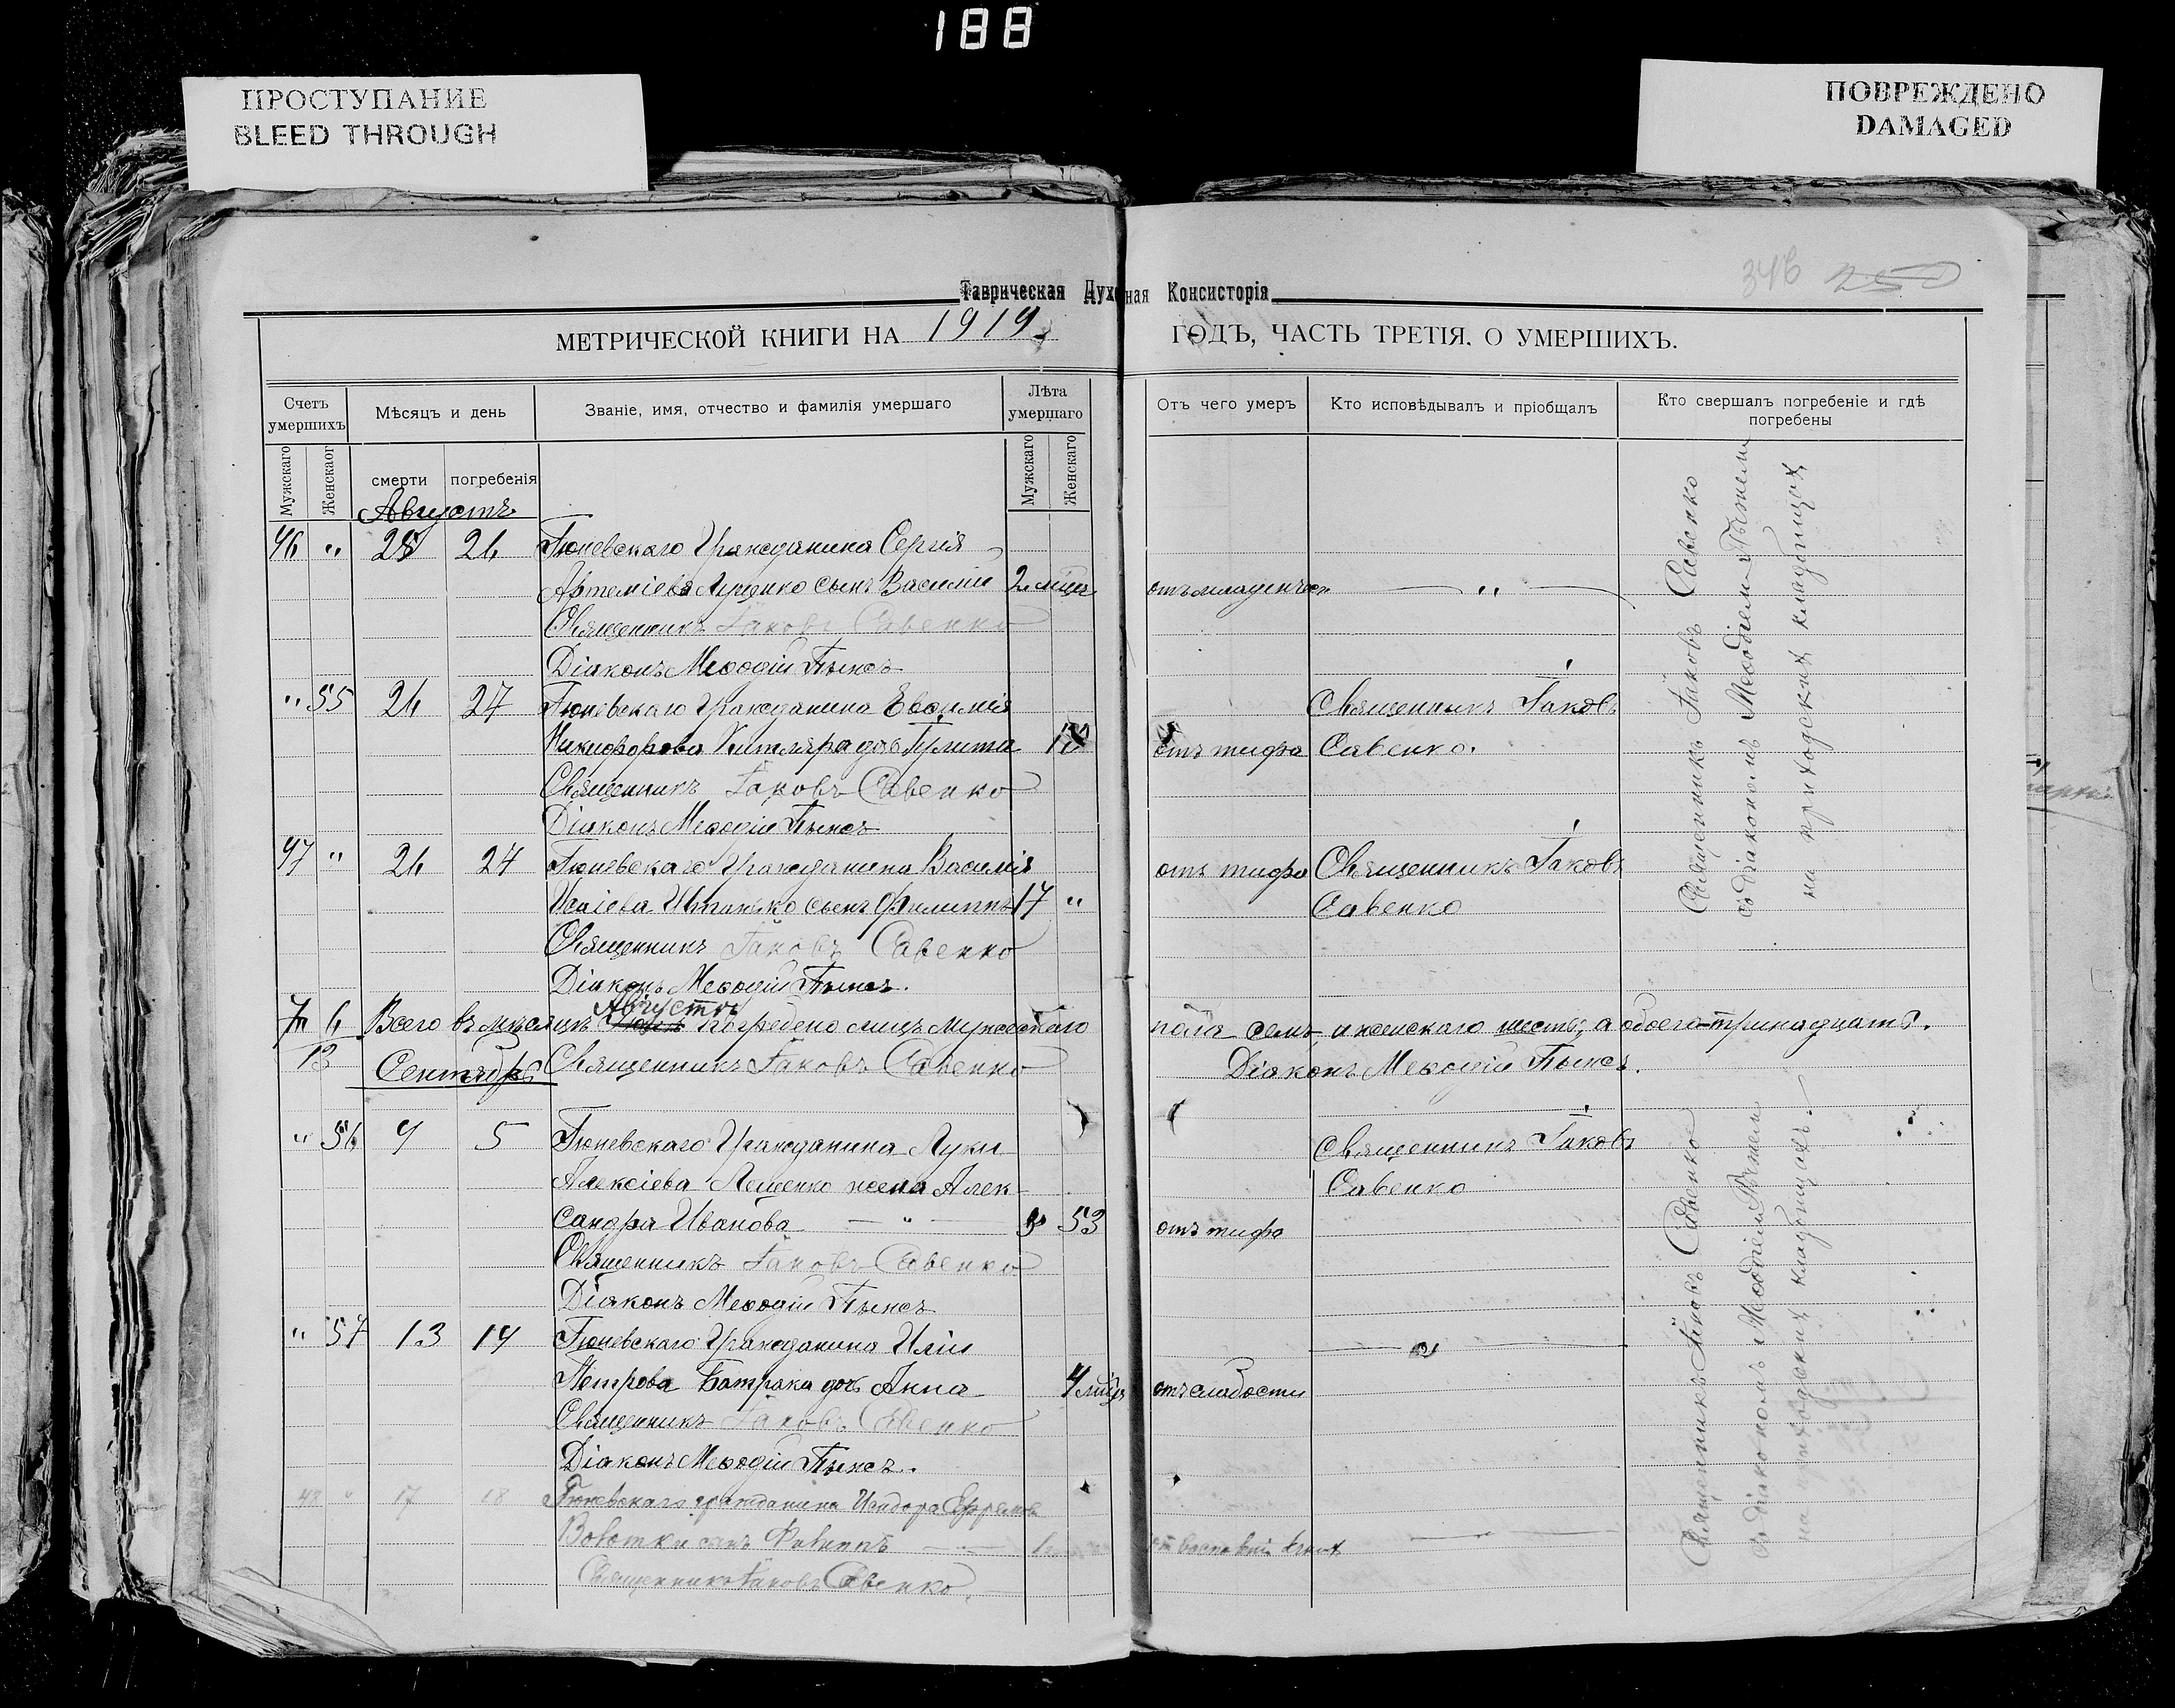 188
ПРОСТУПАНИЕ
BLEED THROUGH
ПОВРЕЖДЕНО
DAMAGED
346 250
Таврическая Духовная Консисторія
МЕТРИЧЕСКОЙ КНИГИ НА 1919 ГОДЪ, ЧАСТЬ ТРЕТІЯ, О УМЕРШИХЪ.
Счетъ умершихъ
Мѣсяцъ и день
Званіе, имя, отчество и фамилія умершаго
Лѣта умершаго
Отъ чего умеръ
Кто исповѣдывалъ и пріобщалъ
Кто свершалъ погребеніе и гдѣ погребены
Мужскаго Женскаог смерти погребенія Мужскаго Женскаго
Августъ
46 " 25 26 Тюневскаго Гражданина Сергія
Артеміева Луценко сынъ Василій 2 мѣц. отъ младенческ — " —
Священникъ Іаковъ Савенко
Діаконъ Меѳодій
" 55 26 27 Тюневскаго Гражданина Евѳимія Священникъ Іаковъ
Никифорова дочь 18 отъ тифа Савенко.
Священникъ Іаковъ Савенко
Діаконъ Меѳодій
47 " 26 27 Тюневскаго Гражданина Василія отъ тифа Священникъ Іаковъ
Исаіева сынъ Филиппъ 17 " Савенко
Священникъ Іаковъ Савенко
Діаконъ Меѳодій
Священникъ Іаковъ Савенко
съ діакономъ Меѳодіемъ
на приходскихъ кладбищахъ
7 6 Всего въ мѣсяцѣ Августѣ погребено лицъ мужескаго пола семь, и женскаго шесть, а обоего тринадцать.
13 Священникъ Іаковъ Савенко Діаконъ Меѳодій
Сентябрь
" 56 4 5 Тюневскаго Гражданина Луки Священникъ Іаковъ
Алексіева Лещенко жена Алек- Савенко
сандра Иванова — " — 53 отъ тифа
Священникъ Іаковъ Савенко
Діаконъ Меѳодій
" 57 13 14 Тюневскаго Гражданина Иліи — " —
Петрова Батрака дочь Анна 4 мѣц. отъ слабости
Священникъ Іаковъ Савенко
Діаконъ Меѳодій
48 " 17 18 Тюневскаго гражданина Исидора Ефремова
сынъ Филиппъ — " —
Священникъ Іаковъ Савенко
Священникъ Іаковъ Савенко
съ діакономъ Меѳодіемъ
на приходскихъ кладбищахъ.